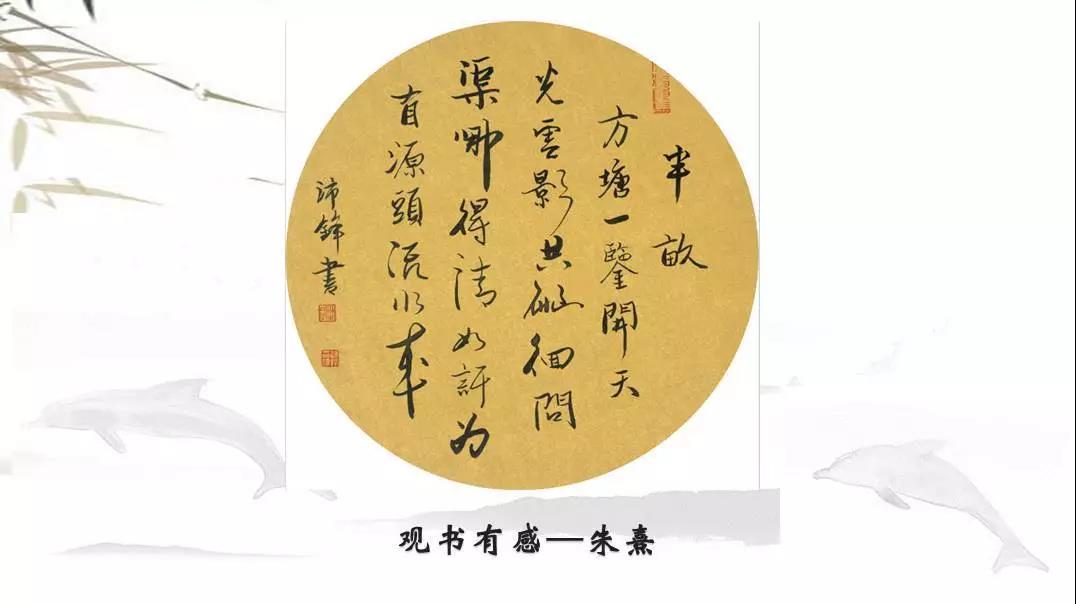 半畝
方塘一鑒開天
光雲影共徘徊問
渠哪得清如許为
有源頭流水来
沛鋒書
观书有感—朱熹